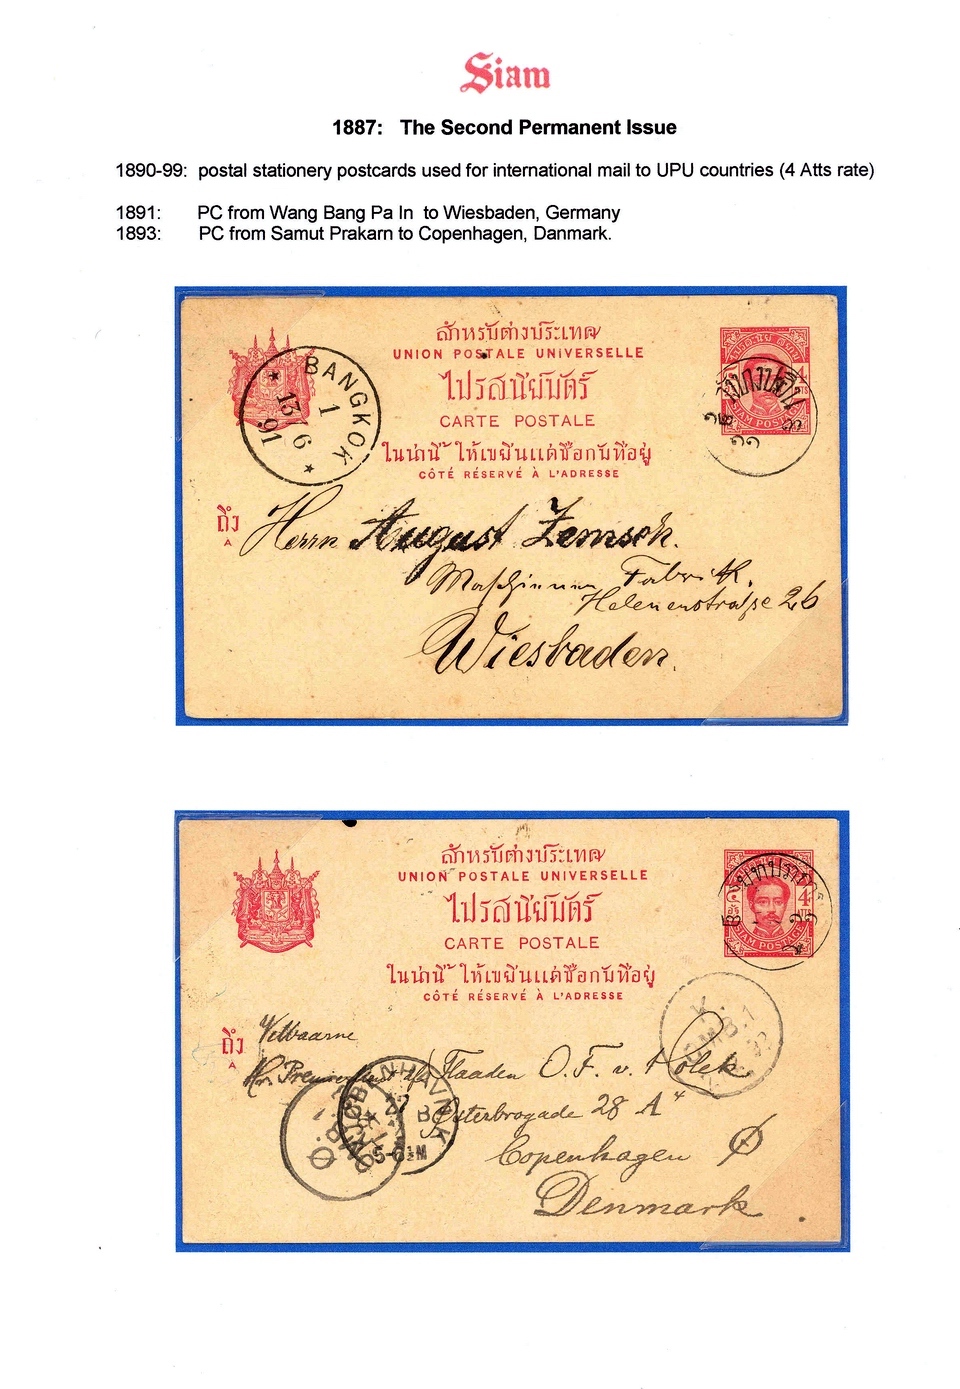 Siam
1887: The Second Permanent Issue
1890-99: postal stationery postcards used for international mail to UPU countries (4 Atts rate)
1891: PC from Wang Bang Pa In to Wiesbaden, Germany
1893: PC from Samut Prakarn to Copenhagen, Danmark.
สำหรับต่างประเทศ
UNION POSTALE UNIVERSELLE
ไปรสนียบัตร์
CARTE POSTALE
ในน่านี้ ให้เขียนแต่ชื่อกับที่อยู่
CÔTÉ RÉSERVÉ À L'ADRESSE
BANGKOK
1
13/6
91
4
SIAM POSTAGE
วังบางปอิน
ถึง
A
Herrn August Zemsch.
Maschinen Fabrik.
Helenenstraße 26
Wiesbaden.
สำหรับต่างประเทศ
UNION POSTALE UNIVERSELLE
ไปรสนียบัตร์
CARTE POSTALE
ในน่านี้ ให้เขียนแต่ชื่อกับที่อยู่
CÔTÉ RÉSERVÉ À L'ADRESSE
4
ATTS
SIAM POSTAGE
ถึง
A
Velbaarne
Hr. Premierlieut af Flaaden O. F. v.
KJØBENHAVN. K
27
5-6½M
Østerbrogade 28 A
Copenhagen Ø
Denmark